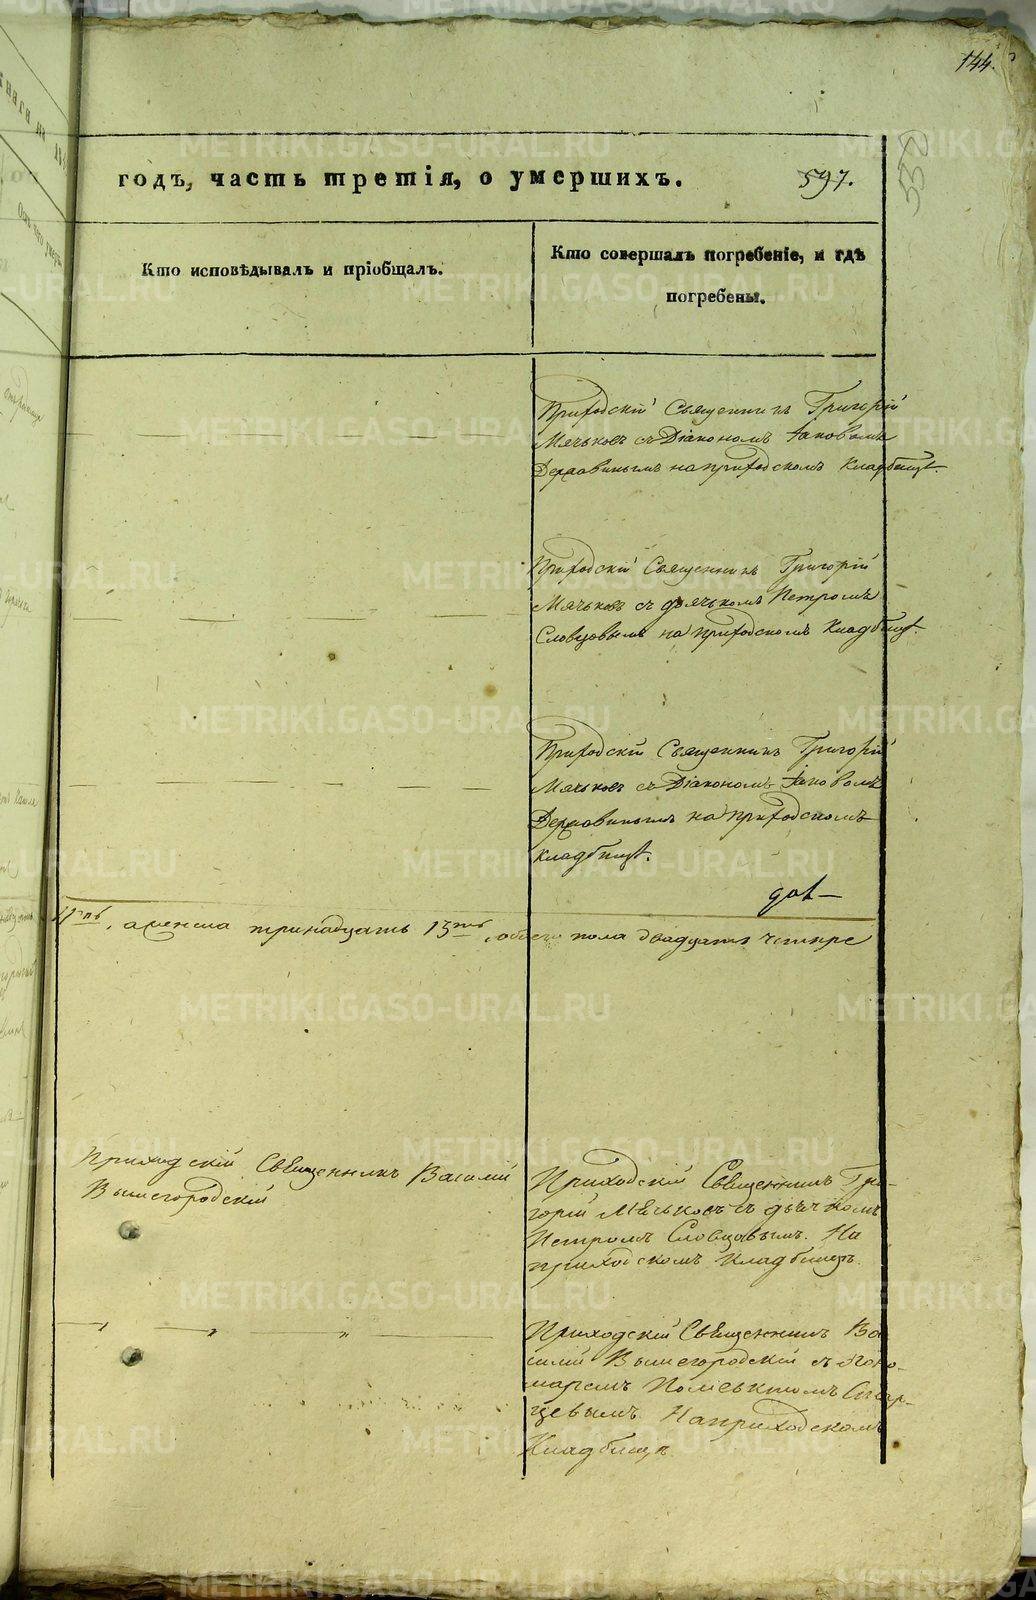 144.
годъ, часть третія, о умершихъ.
597.
Кто исповѣдывалъ и пріобщалъ.
Кто совершалъ погребеніе, и гдѣ
погребены.
Приходскій Священникъ Григорій
Мячьковъ съ Діакономъ Іаковомъ
на приходскомъ кладбищѣ.
Приходскій Священникъ Григорій
Мячьковъ съ дьячькомъ Петромъ
Словцовымъ на приходскомъ Кладбищѣ.
Приходскій Священникъ Григорій
Мячьковъ съ Діакономъ Іаковомъ
на приходскомъ
кладбищѣ.
а женска тринадцать 13ть, обоего пола двадцать четыре
Приходскій Священникъ Василій
Вышегородскій
Приходскій Священникъ Гри-
горій Мячьковъ съ дьячкомъ
Петромъ Словцовымъ. На
приходскомъ Кладбищѣ.
Приходскій Священникъ Ва
силій Вышегородскій съ Поно-
маремъ
цевымъ На приходскомъ
Кладбищѣ
METRIKI.GASO-URAL.RU